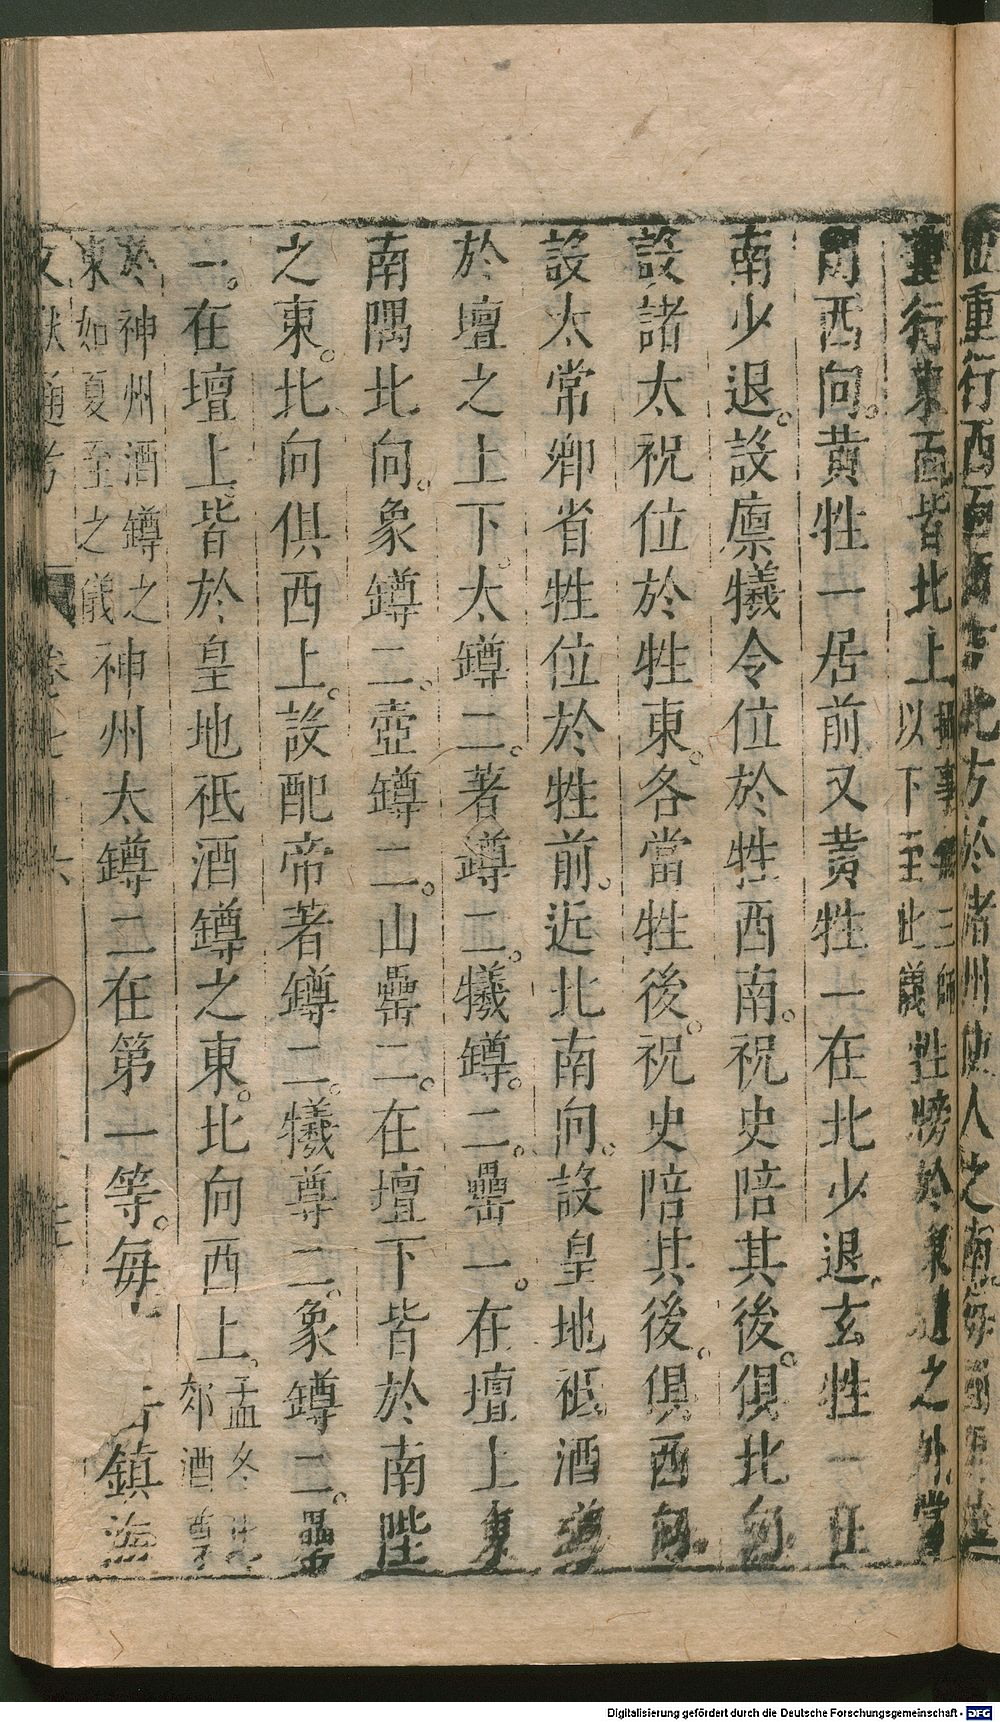 重行西面 方於諸州使人之南每國
重行東面皆北上攝事無三師以下至此儀牲牓於東 之外當
門西向黃牲一居前又黃牲一在北少退玄牲一在
南少退。設廪犧令位於牲西南。祝史陪其後。俱北向
設諸太祝位於牲東。各當牲後。祝史陪其後。俱西向
設太常卿省牲位於牲前。近北南向。設皇地祗酒尊
於壇之上下。太罇二。著罇二。犧罇。二。罍一。在壇上東
南隅北向。象罇二。壺罇二。山罍二。在壇下皆於南陛
之東。北向俱西上。設配帝著罇二。犧尊二。象罇二。罍
一。在壇上皆於皇地祗酒罇之東。北向西上。孟冬北郊酒尊
於神州酒罇之東如夏至之儀神州太罇二在第一等。每 鎮海
文獻通考 卷七十六
Digitalisierung gefördert durch die Deutsche Forschungsgemeinschaft - DFG